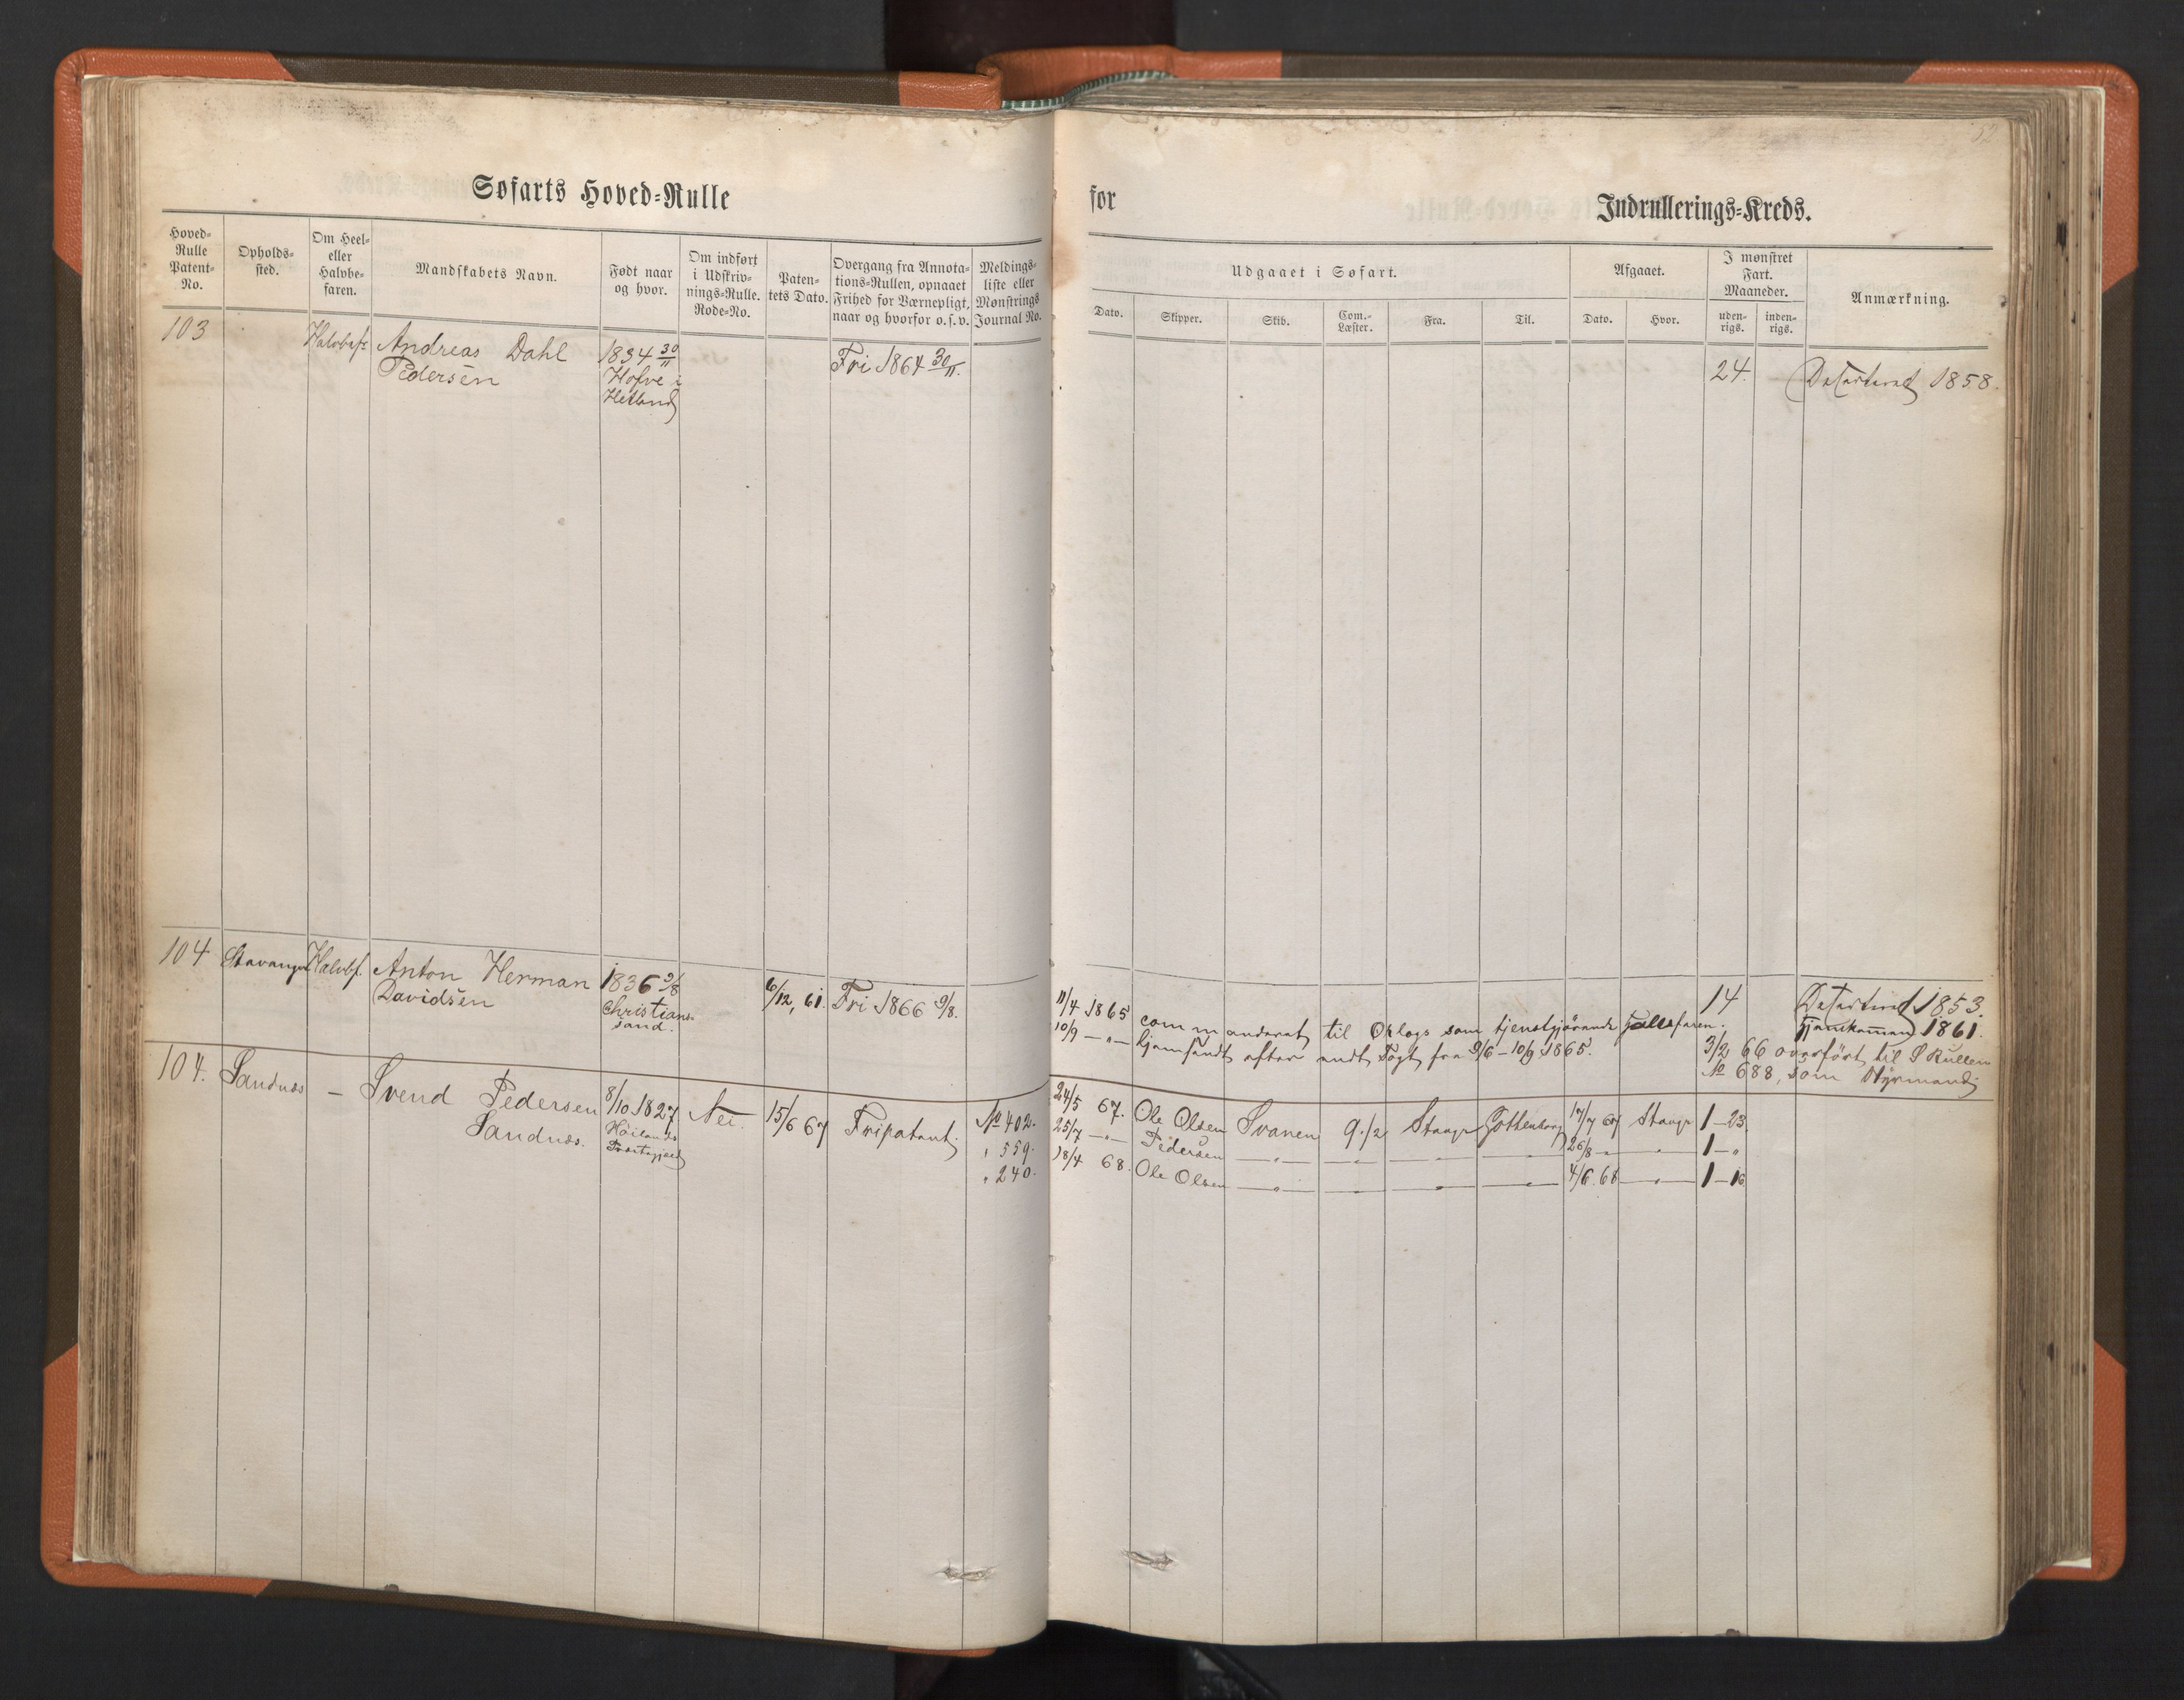 52
Søfarts Hoved-Rulle
for
Indrullerings-Kreds.
Hoved-
Rulle
Patent-
No.
Opholds-
sted.
Om Heel-
eller
Halvbe-
faren.
Mandskabets Navn.
Født naar
og hvor.
Om indført
i Udskriv-
nings-Rulle.
Rode-No.
Paten-
tets Dato.
Overgang fra Annota-
tions-Rullen, opnaaet
Frihed for Værnepligt,
naar og hvorfor o. s. v.
Meldings-
liste eller
Mønstrings
Journal No.
Udgaaet i Søfart.
Dato.
Skipper.
Skib.
Com.-
Læster.
Fra.
Til.
Afgaaet.
Dato.
Hvor.
I mønstret
Fart.
Maaneder.
uden-
rigs.
inden-
rigs.
Anmærkning.
103
Halvbef
Andreas Dahl
Pedersen
1834 30/11
Hofve i
Hetland
Fri 1864 30/11.
24.
1858.
104
Stavanger
Halvbf.
Anton Herman
Davidsen
1836 9/8
Christian-
sand.
6/12, 61.
Fri 1866 9/8.
11/4 1865 commanderet til Orlogs som tjenstgjørende
10/9 — " — hjemsendt efter endt Togt fra 9/6 – 10/9 1865.
14
1853.
1861.
3/2 66 overført til S Rullen
No 688, som Styrmand
104.
Sandnes
—
Svend Pedersen
Sandnes.
8/10 1827.
Høilands
Præstegjeld
Nei
15/6 67
Fripatent.
No 402.
" 559.
" 240.
24/5 67. Ole Olsen Svanen 9 1/2 Stavgr Gothenborg 17/7 67 Stavgr 1 – 23.
25/7 — " — Pedersen — " — — " — — " — — " — 26/8 - " — " — 1 – "
18/4 68. Ole Olsen — " — — " — — " — — " — 4/6 68 — " — 1 – 16